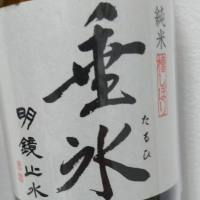 純米
槽しぼり
垂氷
たるひ
明鏡止水